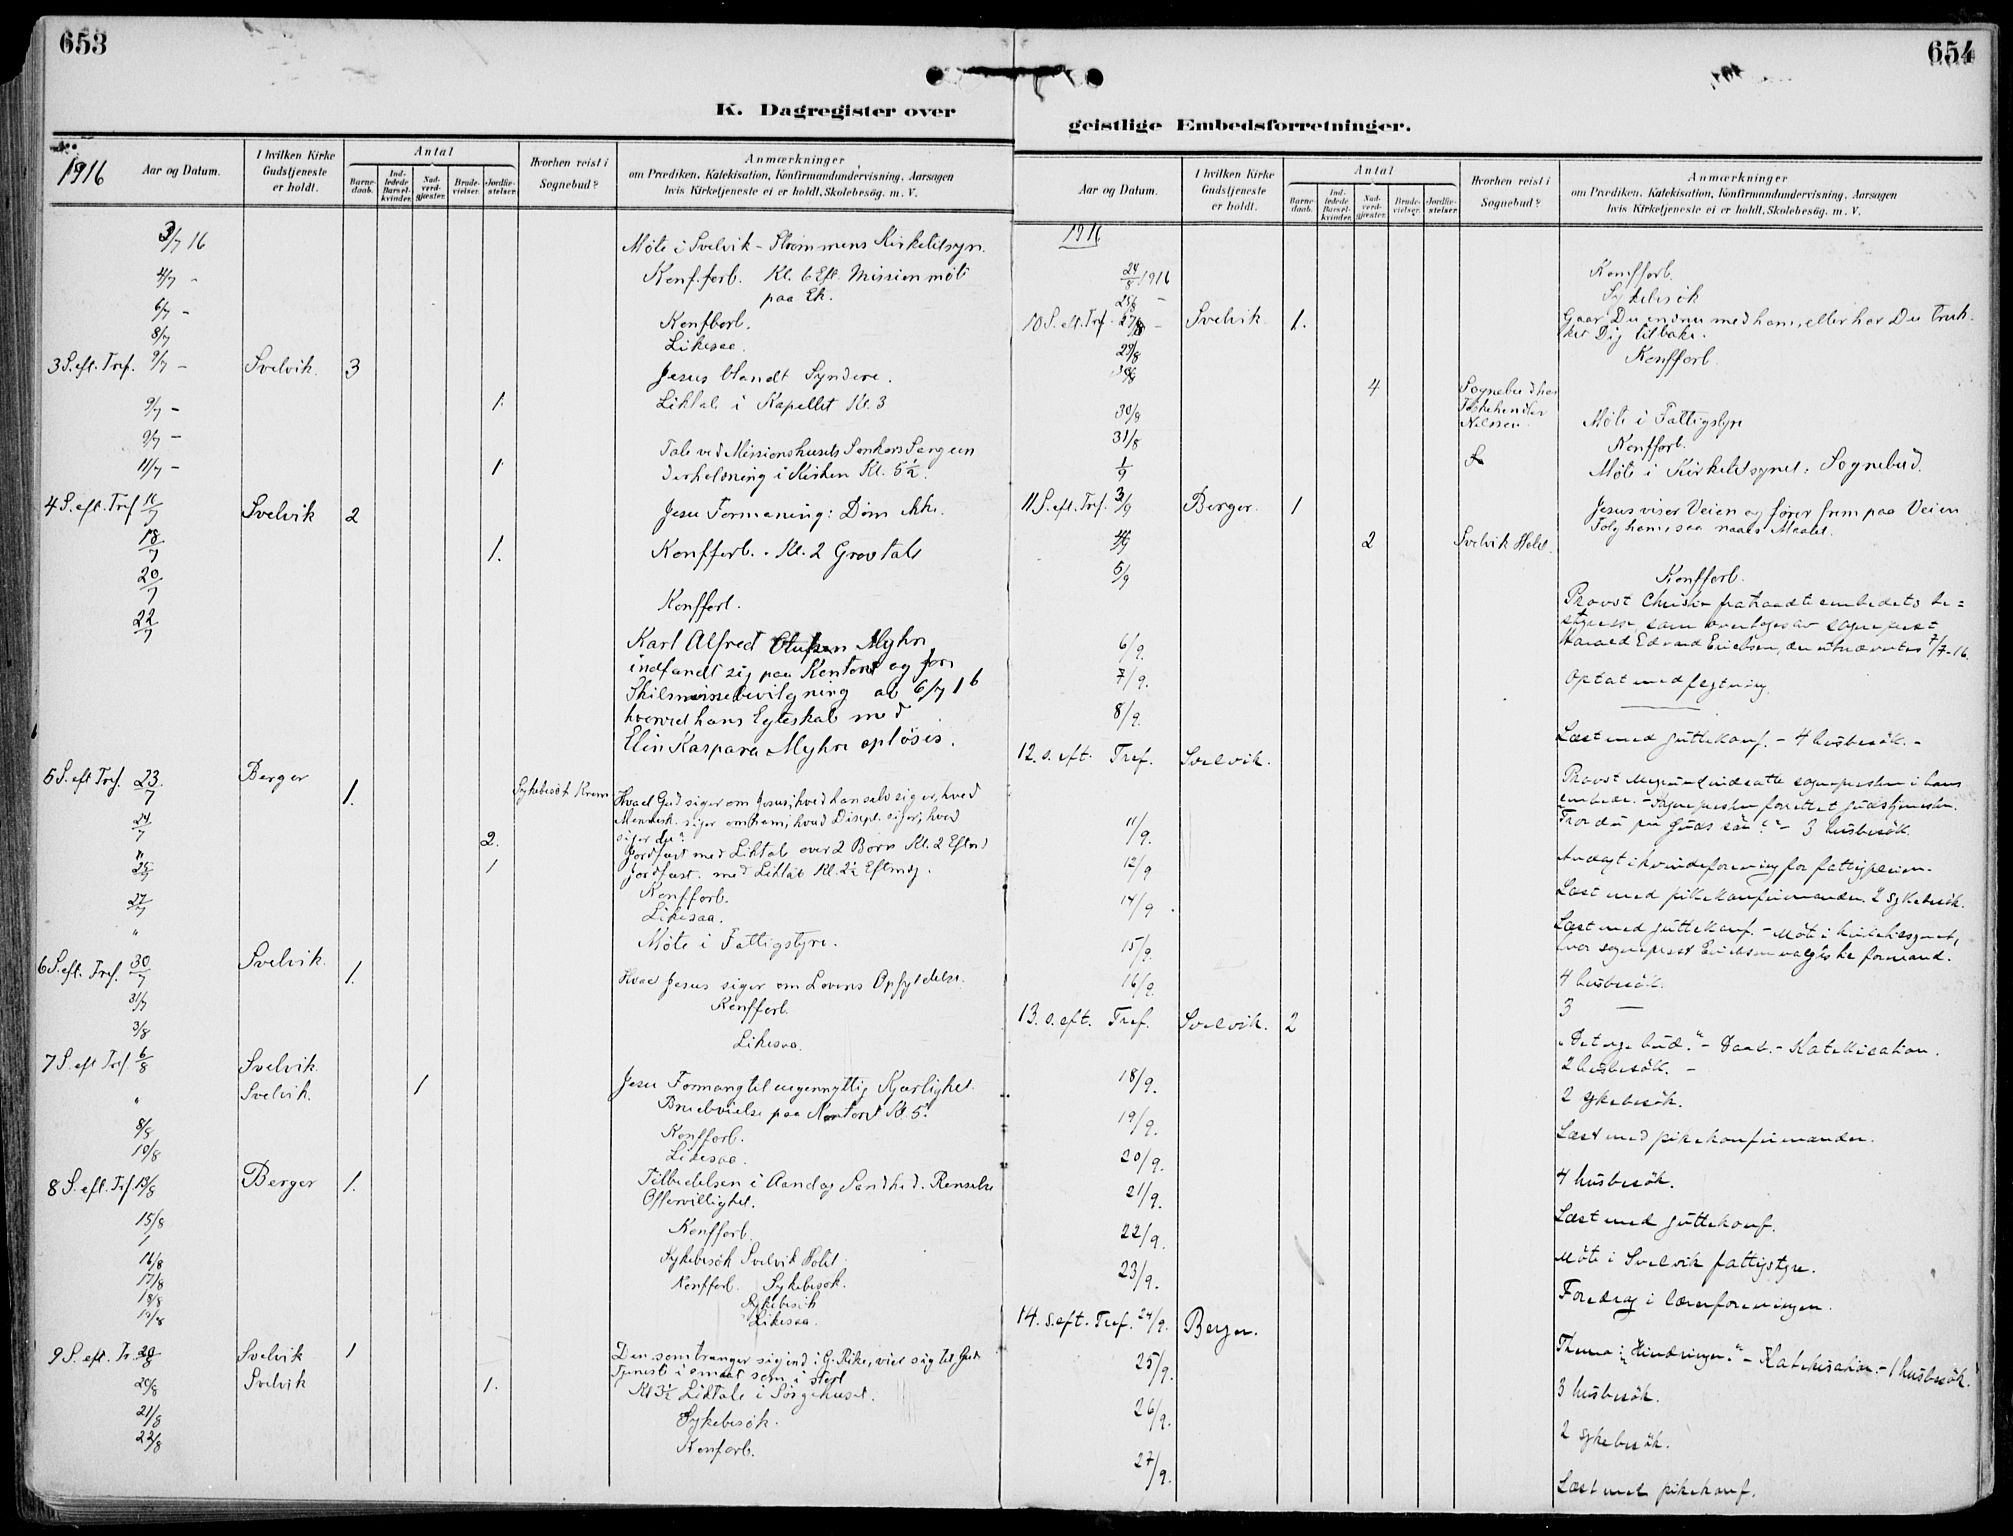 653
K. Dagregister over
1916
Aar og Datum.
I hvilken Kirke Gudstjeneste er holdt.
Antal
Barnedaab.
Indledede Barselkvinder.
Nadverdgjæster.
Brudevielser.
Jordfæstelser.
Hvorhen reist i Sognebud?
Anmærkninger
om Prædiken, Katekisation, Konfirmandundervisning, Aarsagen
hvis Kirketjeneste ei er holdt, Skolebesög, m. V.
3/7 16 Möte i Svelvik - Strömmens Kirketilsyn.
4/7 - Konf.forb. Kl. 6 Eft. Mission möte
paa Ek.
6/7 - Konfforb.
8/7 Likesaa.
3 S. eft. Tref. 9/7 - Svelvik. 3 Jesus blandt Syndere.
9/7 - 1. Liktale i Kapellet Kl. 3
9/7 - Tale ved Missionshusets
11/7 - 1 i Kirken Kl. 5½.
4 S. eft. Tref 16/7 Svelvik 2 Jesu Formaning: Döm ikke.
18/7 1. Konfforb. Kl. 2 Gravtale
20/7 Konfforb.
22/7
Karl Alfred Myhre
indfandt sig paa Kontoret og
Skilsmissebevilgning av 6/7 16
hvorved hans Egteskab med
Elin Kaspara Myhre oplöses.
5 S. eft Tref. 23/7 Berger 1. Sykebesök Hvad Gud siger om Jesus, hvad han selv siger, hvad
Mennesk. siger om ham, hvad Discipl. siger, hvad
siger du?
24/7 2. Jordfæst med Liktale over 2 Börn Kl. 2 Eftmd
" 1 Jordfæst. med Liktale Kl. 2½ Eftmdg.
25/7 Konfforb.
27/7 Likesaa.
" Möte i Fattigstyre.
6 S. eft. Tref. 30/7 Svelvik. 1. Hvad Jesus siger om Lovens Opfyldelse.
31/7 Konfforb.
3/8 Likesaa.
7 S. eft Tref 6/8 Svelvik. Jesu Formang til uegennyttig Kjærlighet
" Svelvik. 1 Brudevielse paa Kontoret Kl. 5.
8/8 Konfforb.
10/8 Likesaa.
8 S. eft. Tref. 13/8 Berger 1. Tilbedelsen i Aand og Sandhed. Renselse
Offervillighet.
15/8 Konfforb.
16/8 Sykebesök Svelvik
17/8 Konfforb. Sykebesök.
18/8 Sykebesök
19/8 Likesaa.
9 S. eft. Tr. 20/8 Svelvik 1 Den som trænger sig ind i G. Rike, vier sig til Guds
Tjeneste i smaat som i stort
20/8 Svelvik 1. Kl 3½ Liktale i Sörgehuset.
21/8 Sykebesök.
22/8 Konforb.
654
geistlige Embedsforretninger.
Aar og Datum.
I hvilken Kirke Gudstjeneste er holdt.
Antal
Barnedaab.
Indledede Barselkvinder.
Nadverdgjæster.
Brudevielser.
Jordfæstelser.
Hvorhen reist i Sognebud?
Anmærkninger
om Prædiken, Katekisation, Konfirmandundervisning, Aarsagen
hvis Kirketjeneste ei er holdt, Skolebesög, m. V.
1916
24/8 1916 Konfforb.
25/8 - Sykebesök
10 S. eft. Tref. 27/8 - Svelvik 1. Gaar Du endnu med ham, eller har Du truk-
ket Dig tilbake.
29/8 Konfforb.
4 Sognebud hos
Nilssen
30/8 Möte i Fattigstyre
31/8 Konfforb.
1/9 Möte i Kirketilsynet. Sognebud.
11 S. eft. Tref. 3/9 Berger. 1 Jesus viser Veien og förer frem paa Veien
Fölg ham, saa naaes Maalet.
4/9 2 Svelvik
5/9 Konfforb.
Provst fratraadte embedets be=
styrelse, som overtoges av sogneprest
Harald Edvard Erichsen, der utnævntes 7/7-16.
6/9. Optat med flytning.
7/9.
8/9. Læst med guttekonf. - 4 husbesök. -
12. s. eft. Tref. Svelvik. Provst indsatte sognepresten i hans
embede. - Sognepresten forrettet gudstjenesten.
"Tror du paa Guds sön?" - 3 husbesök.
11/9. Andagt i kvindeforening for fattigpleien.
12/9 Læst med pikekonfirmander. 2 sykebesök.
14/9 Læst med guttekonf. - Möte i kirketilsynet,
hvor sogneprest Erichsen valgtes til formand.
15/9. 4 husbesök.
16/9. 3 —
13. s. eft. Tref. Svelvik. 2 " bud." - Daab. - Katekisation.
2 husbesök. -
18/9. 2 sykebesök.
19/9. Læst med pikekonfirmander.
20/9. 4 husbesök.
21/9. Læst med guttekonf.
22/9. Möte i Svelvik fattigstyre.
23/9. Foredrag i lærerforeningen.
14. s. eft. Tref. 24/9. Berger. Thema: "Hindringer." - Katekisation. - 1 husbesök.
25/9. 3 husbesök.
26/9. 2 sykebesök.
27/9. Læst med pikekonf.